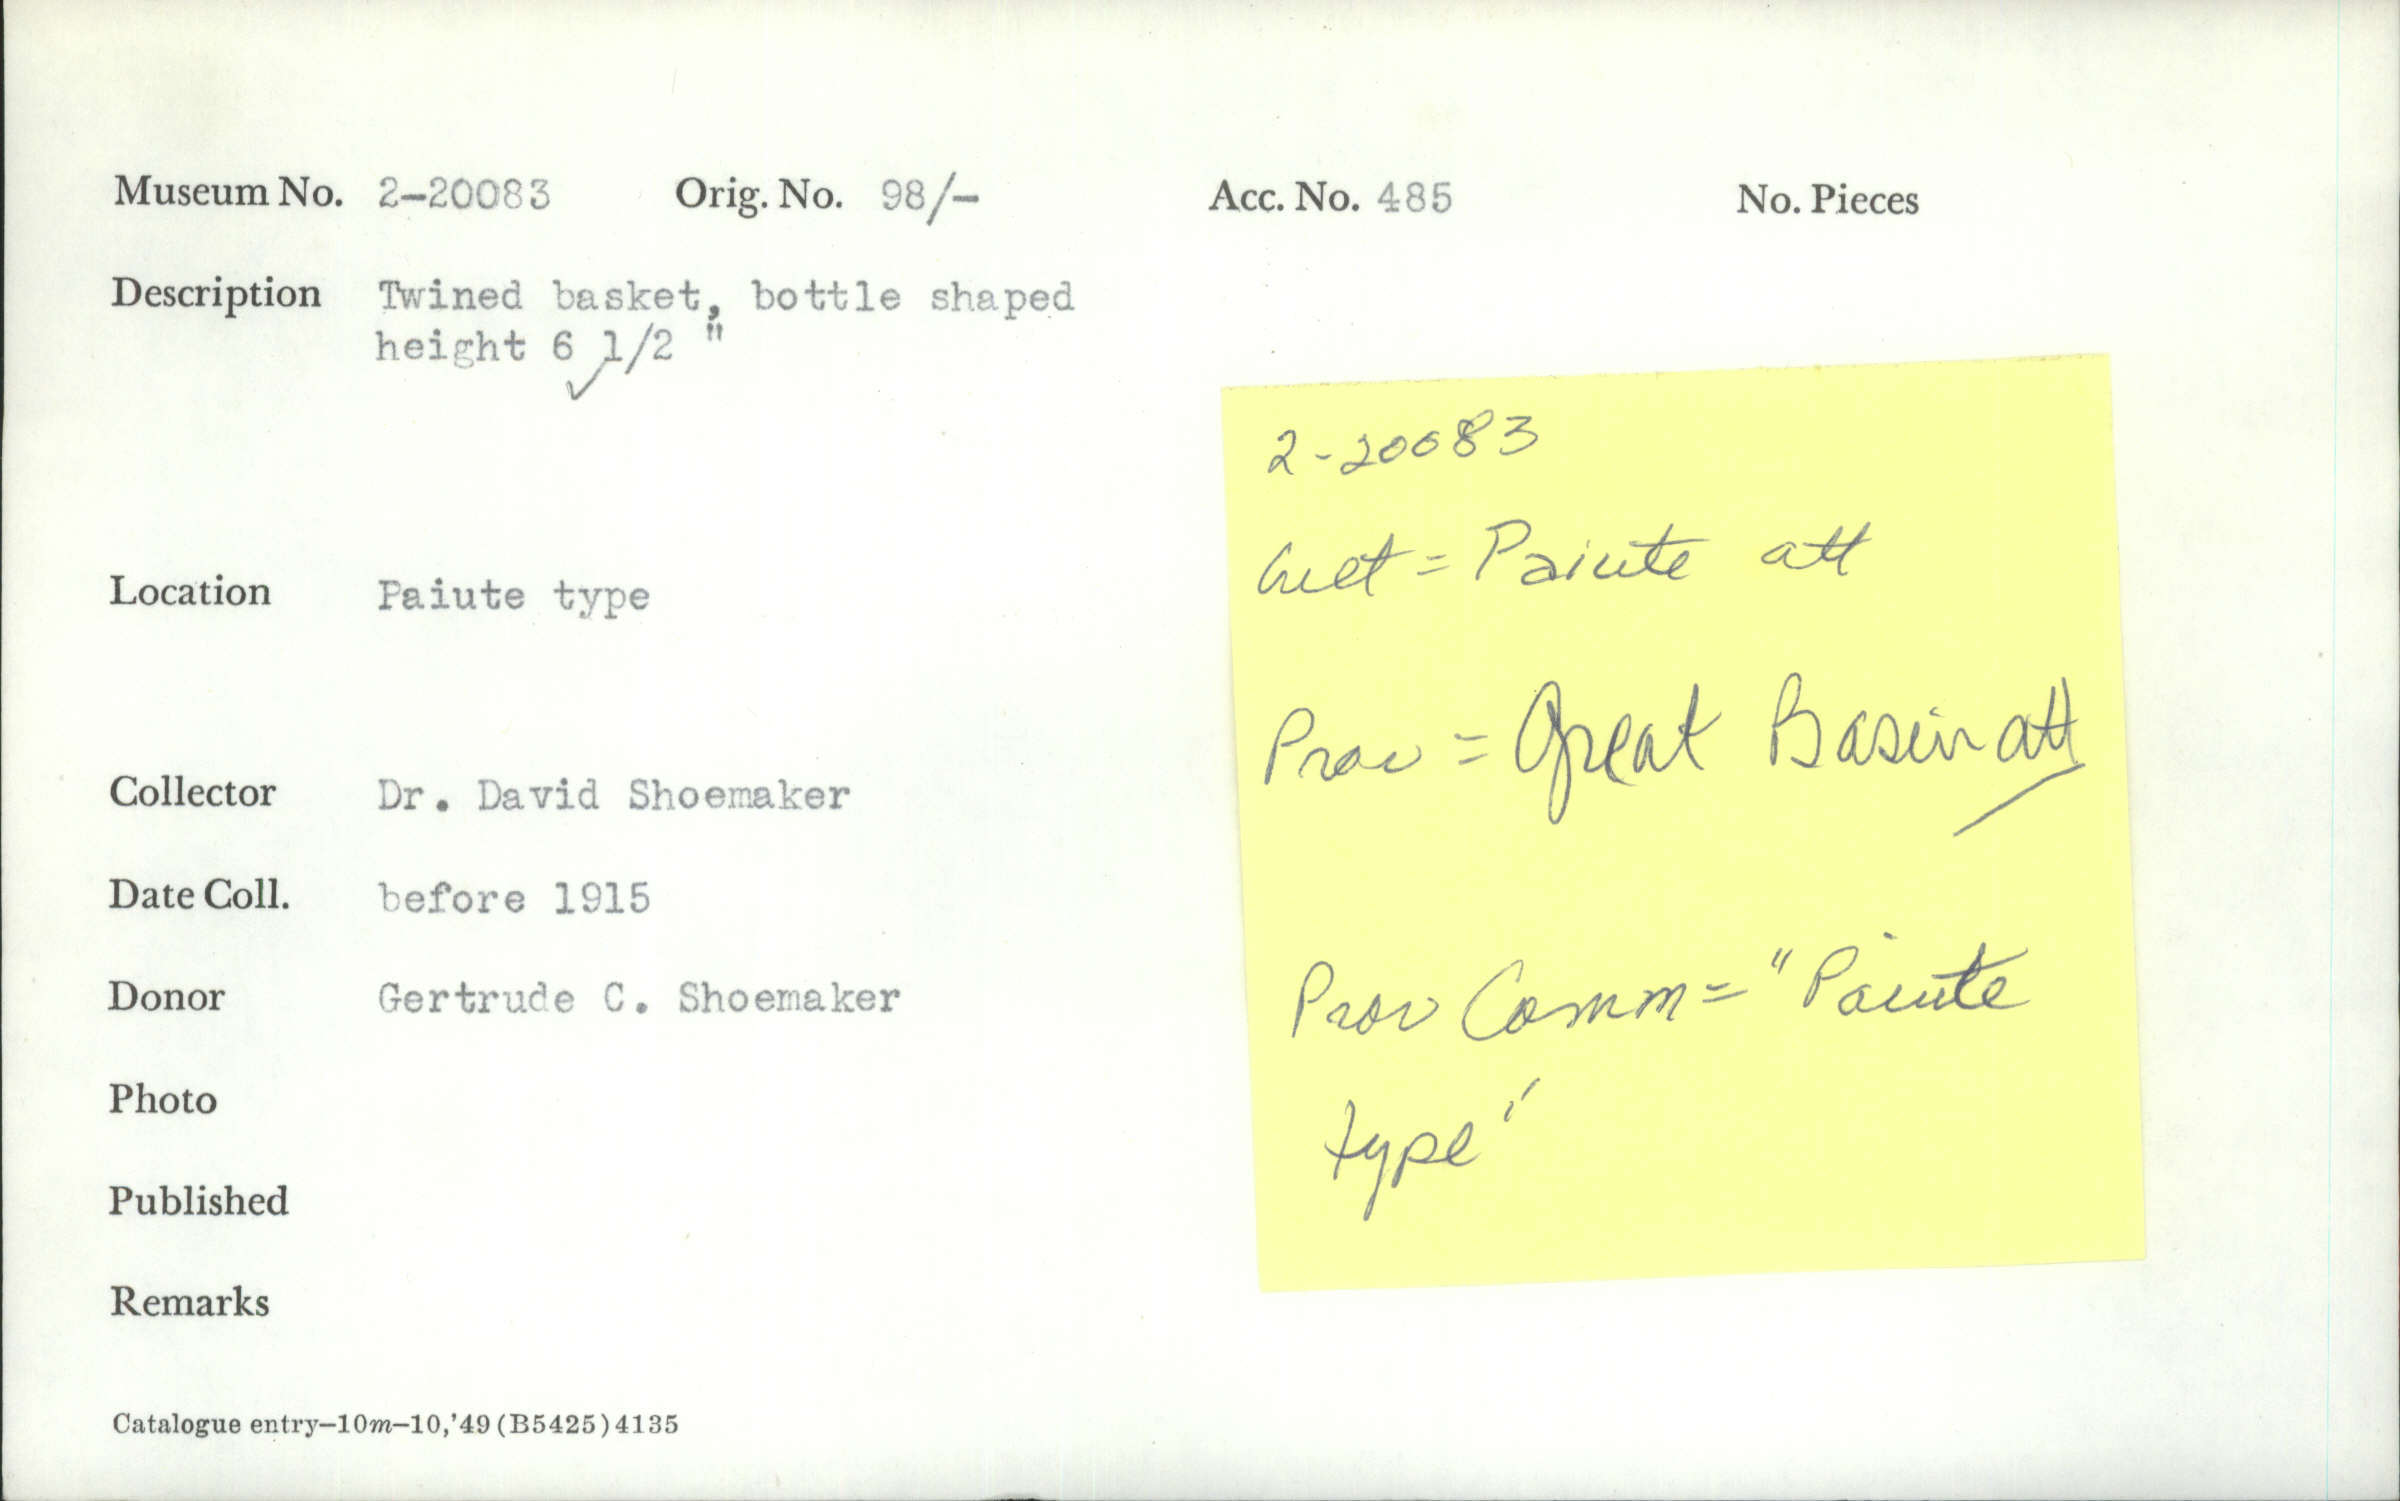 Museum No. 2-20083 Orig. No. 98/- Acc. No. 485 No. Pieces
Description Twined basket, bottle shaped
height 6 1/2 "
Location Paiute type
Collector Dr. David Shoemaker
Date Coll. before 1915
Donor Gertrude C. Shoemaker
Photo
Published
Remarks
Catalogue entry—10m—10,'49 (B5425) 4135
2-20083
Cult = Paiute att
Prov = Great Basin att
Prov Comm = "Paiute
type"